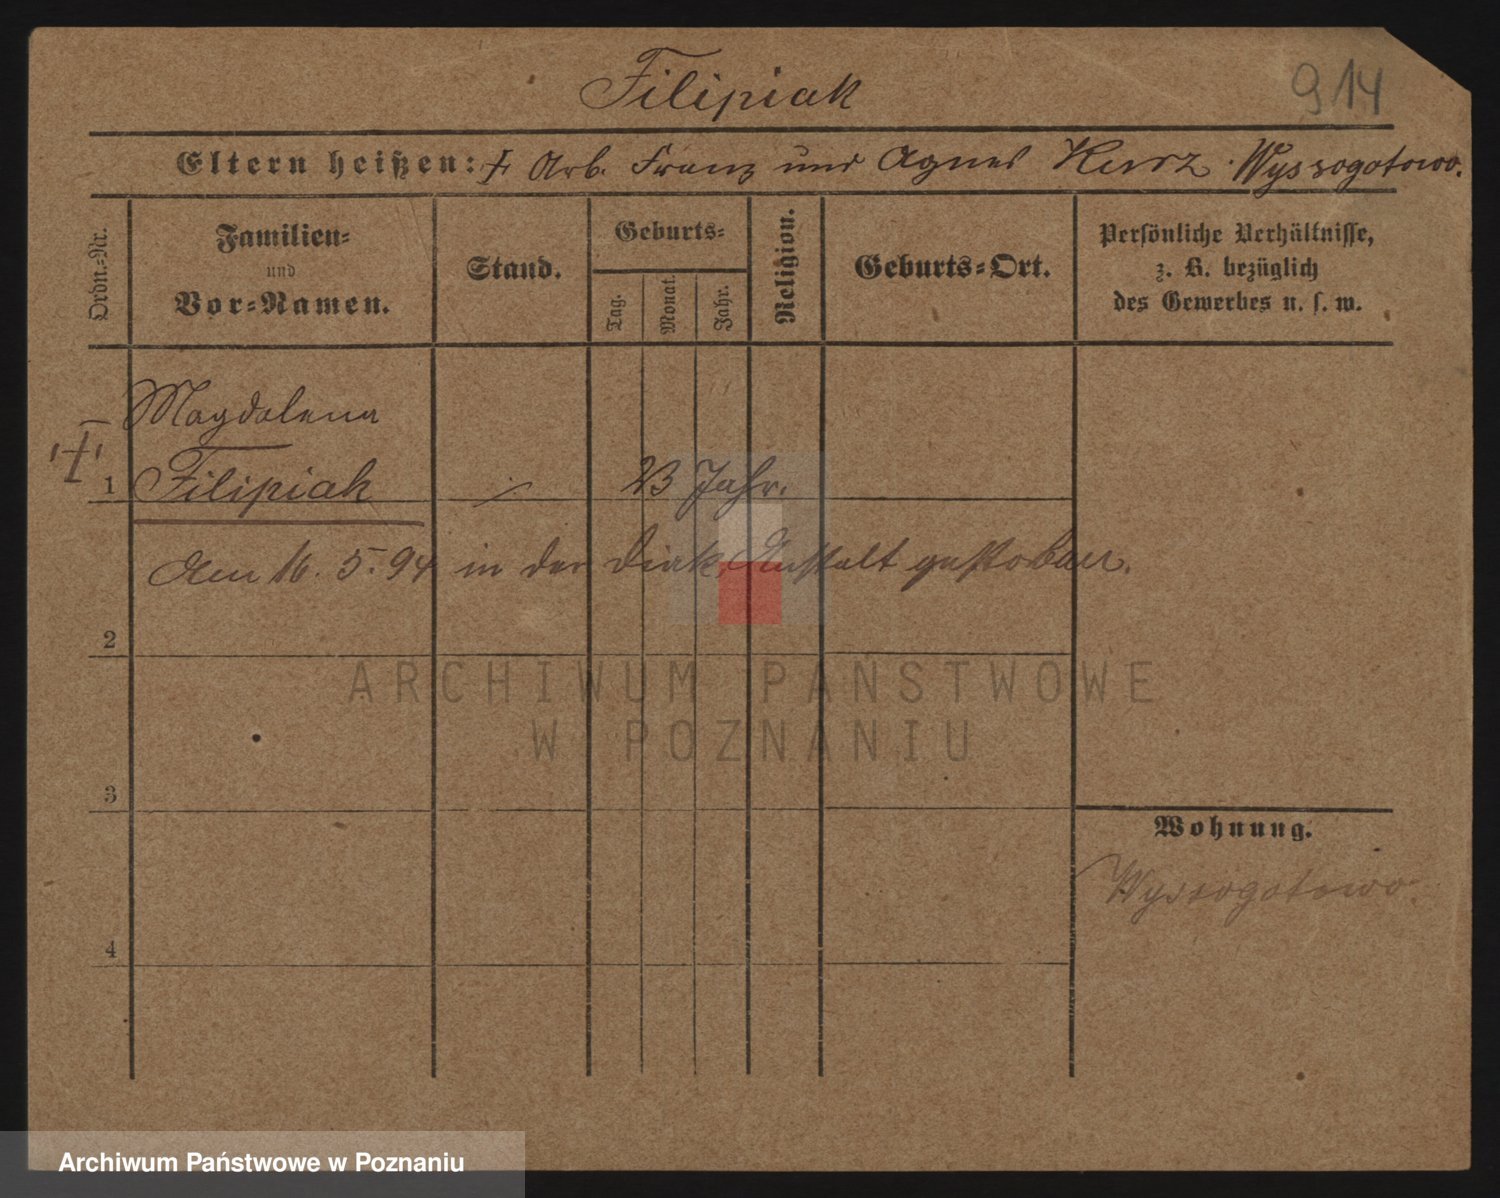 Filipiak
914
Eltern heißen: † Arb. Franz und Agnes Kurz. Wyssogotowo.
Ordn.-Nr.
Familien-
und
Vor-Namen.
Stand.
Geburts-
Tag.
Monat.
Jahr.
Religion.
Geburts-Ort.
Persönliche Verhältnisse,
z. B. bezüglich
des Gewerbes u. s. w.
Magdalena
1 Filipiak 23 Jahr.
Am 16. 5. 94 in der Diak. Anstalt gestorben.
2
ARCHIWUM PAŃSTWOWE
W POZNANIU
3
Wohnung.
Wyssogotowo.
4
Archiwum Państwowe w Poznaniu